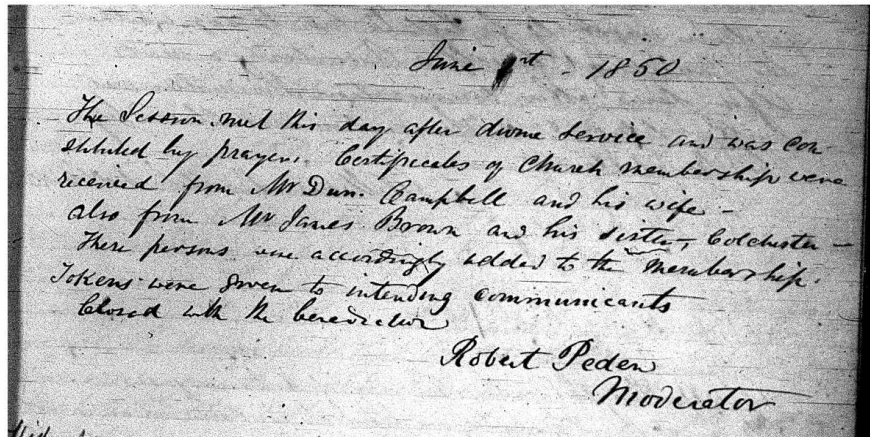 June 1st - 1850
The Session met this day after divine service and was con-
stituted by prayer. Certificates of Church membership were
received from Mr Dun. Campbell and his wife -
also from Mr James Brown and his sister, Colchester -
These persons were accordingly added to the membership.
Tokens were given to intending communicants
Closed with the benediction
Robert Peden
Moderator